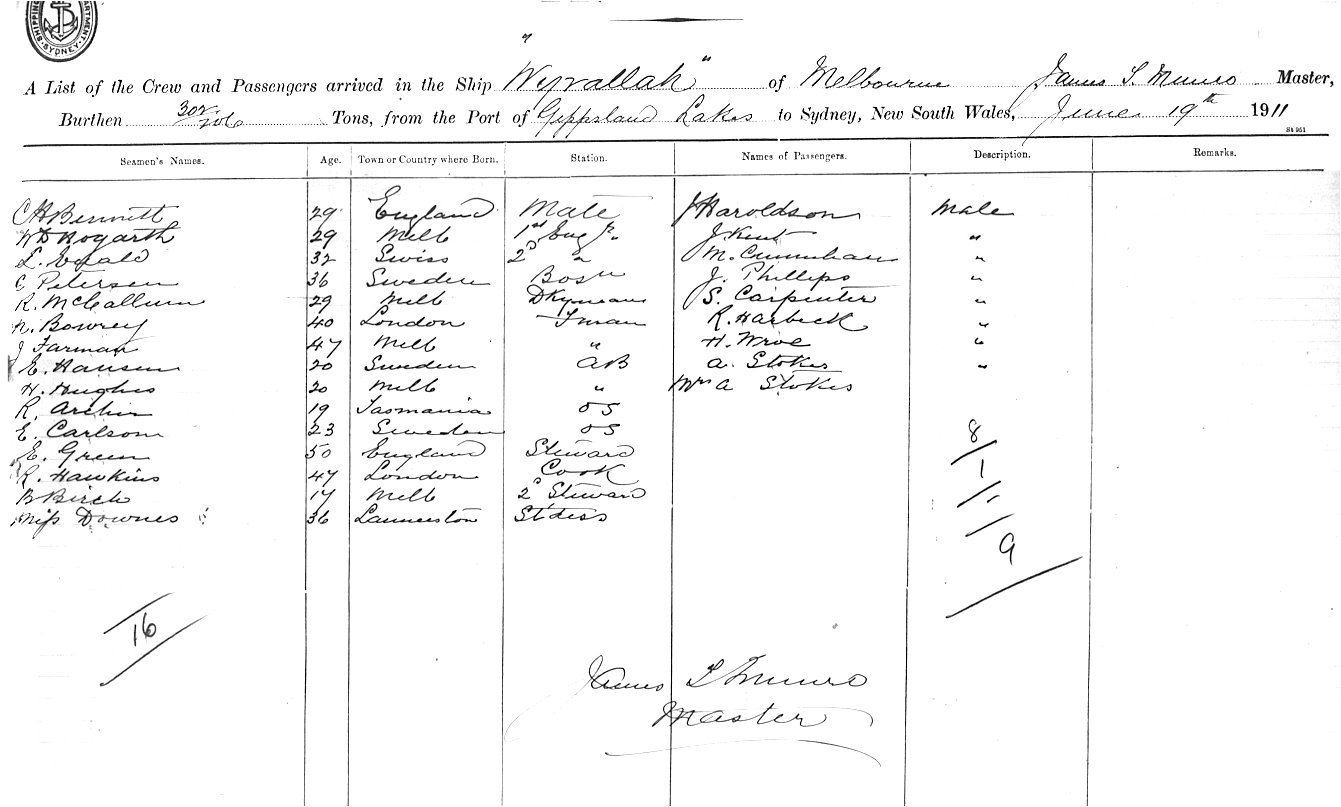 SHIPPING DEPARTMENT SYDNEY
A List of the Crew and Passengers arrived in the Ship "Wyrallah" of Melbourne James S Munro Master,
Burthen 302/206 Tons, from the Port of Gippsland Lakes to Sydney, New South Wales, June 19th 1911
St 951
Seamen's Names. Age. Town or Country where Born. Station. Names of Passengers. Description. Remarks.
C H Bennett 29 England Mate J Haroldson Male
W D Hogarth 29 Melb 1st Engr. J. Kent "
L. 32 Swiss 2d " M. "
C Petersen 36 Sweden Bosn J. Phillips "
R. McCallum 29 Melb Dkyman S. Carpenter "
N. Bowrey 40 London Fman R. Harbeck "
J Farman 47 Melb " H. Wroe "
E. Hansen 20 Sweden AB A. Stokes "
H. Hughes 20 Melb " Mrs A Stokes
R. Archer 19 Tasmania OS
E. Carlsom 23 Sweden OS 8
E. Green 50 England Steward
R. Hawkins 47 London Cook 1
B Birch 17 Melb 2d Steward
Miss Downes 36 Launceston Stdess
9
16
James S Munro
Master